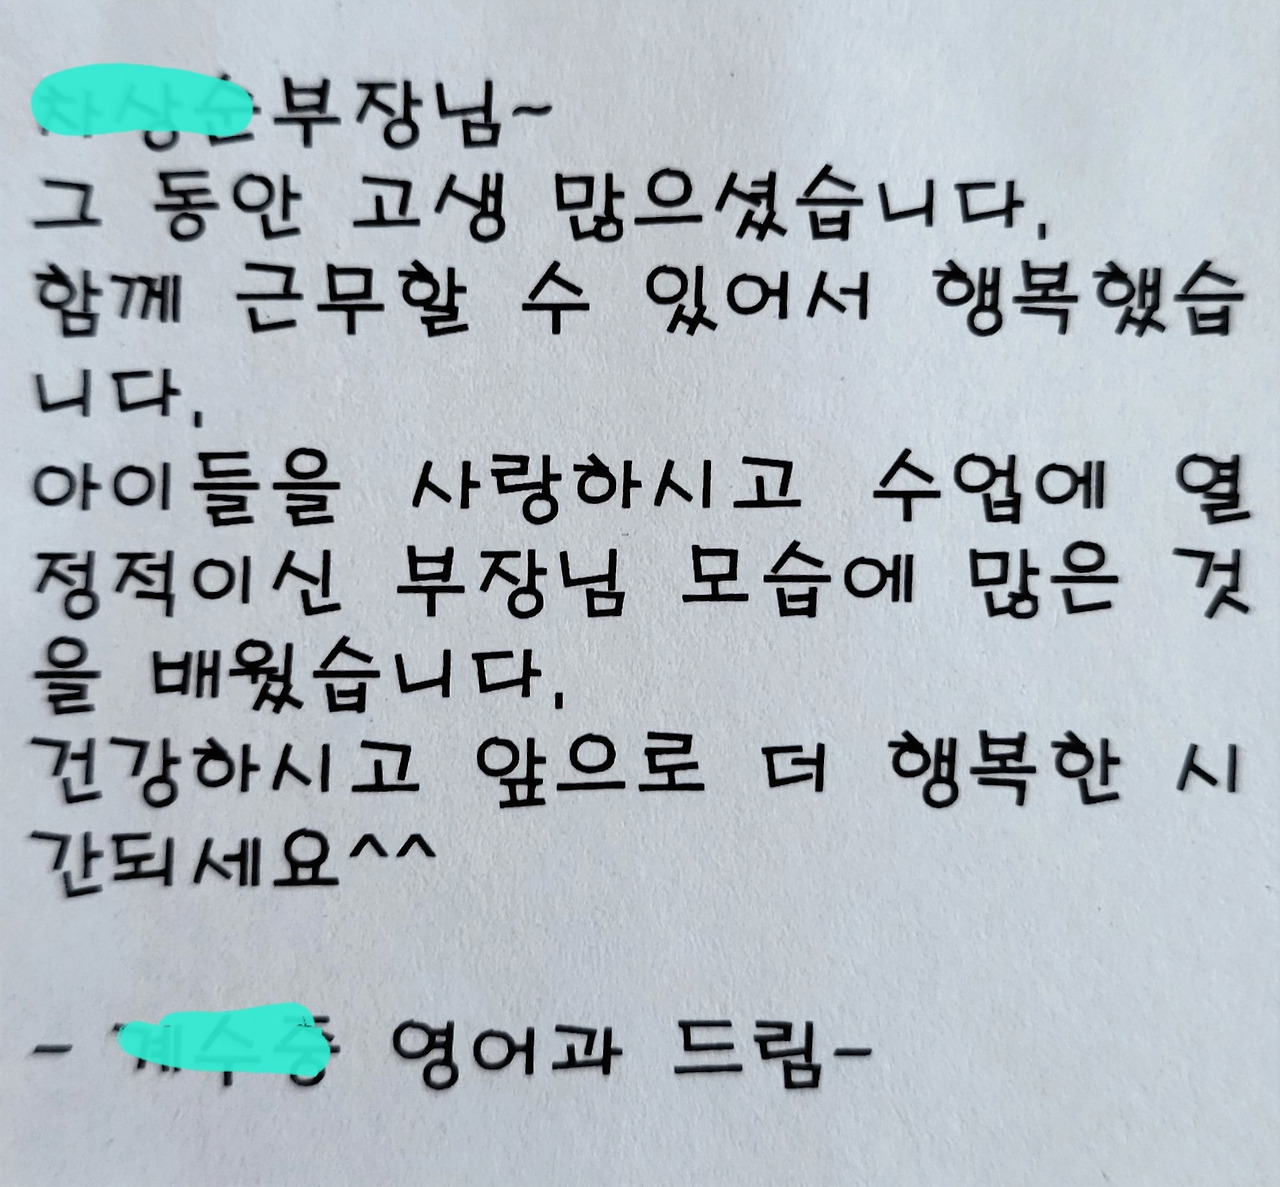 부장님~
그 동안 고생 많으셨습니다.
함께 근무할 수 있어서 행복했습
니다.
아이들을 사랑하시고 수업에 열
정적이신 부장님 모습에 많은 것
을 배웠습니다.
건강하시고 앞으로 더 행복한 시
간되세요^^
- 영어과 드림-